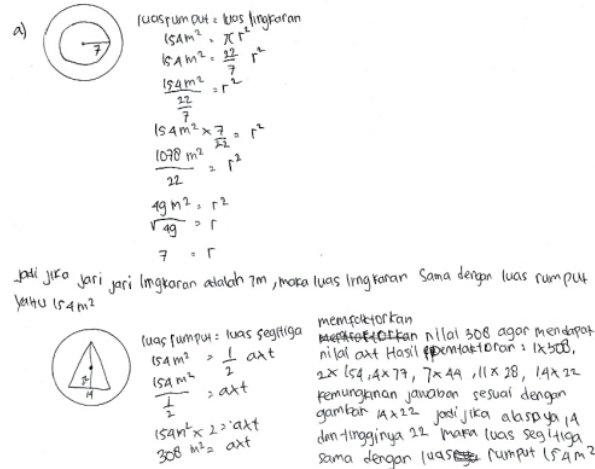 a)
7
luas rumput = luas lingkaran
154 m² = π r²
154 m² = 22/7 r²
154 m² / 22/7 = r²
154 m² × 7/22 = r²
1078 m² / 22 = r²
49 m² = r²
√49 = r
7 = r
Jadi jika jari jari lingkaran adalah 7m, maka luas lingkaran sama dengan luas rumput
yaitu 154 m²
14
luas rumput = luas segitiga
154 m² = 1/2 axt
154 m² / 1/2 = axt
154 m² × 2 = axt
308 m² = axt
memfaktorkan
nilai 308 agar mendapat
nilai axt Hasil pemfaktoran : 1x308,
2x 154, 4x77, 7x44, 11x28, 14x22
kemungkinan jawaban sesuai dengan
gambar 14x22 jadi jika alasnya 14
dan tingginya 22 maka luas segitiga
sama dengan luas rumput 154 m²